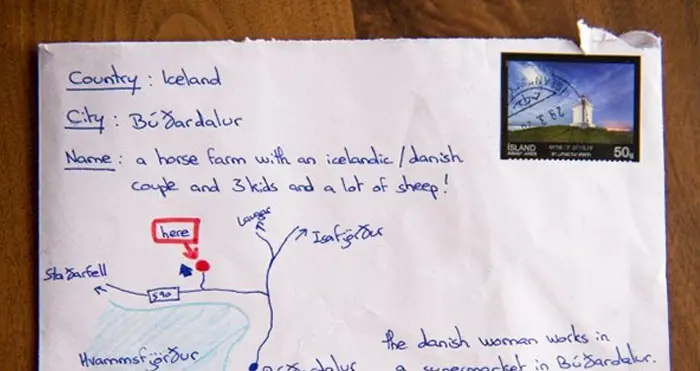 Country: Iceland
City: Búðardalur
Name: a horse farm with an icelandic/danish
couple and 3 kids and a lot of sheep!
ÍSLAND
50g
here
Laugar
Isafjörður
Staðarfell
590
Hvammsfjörður
the danish woman works in
a supermarket in Búðardalur.